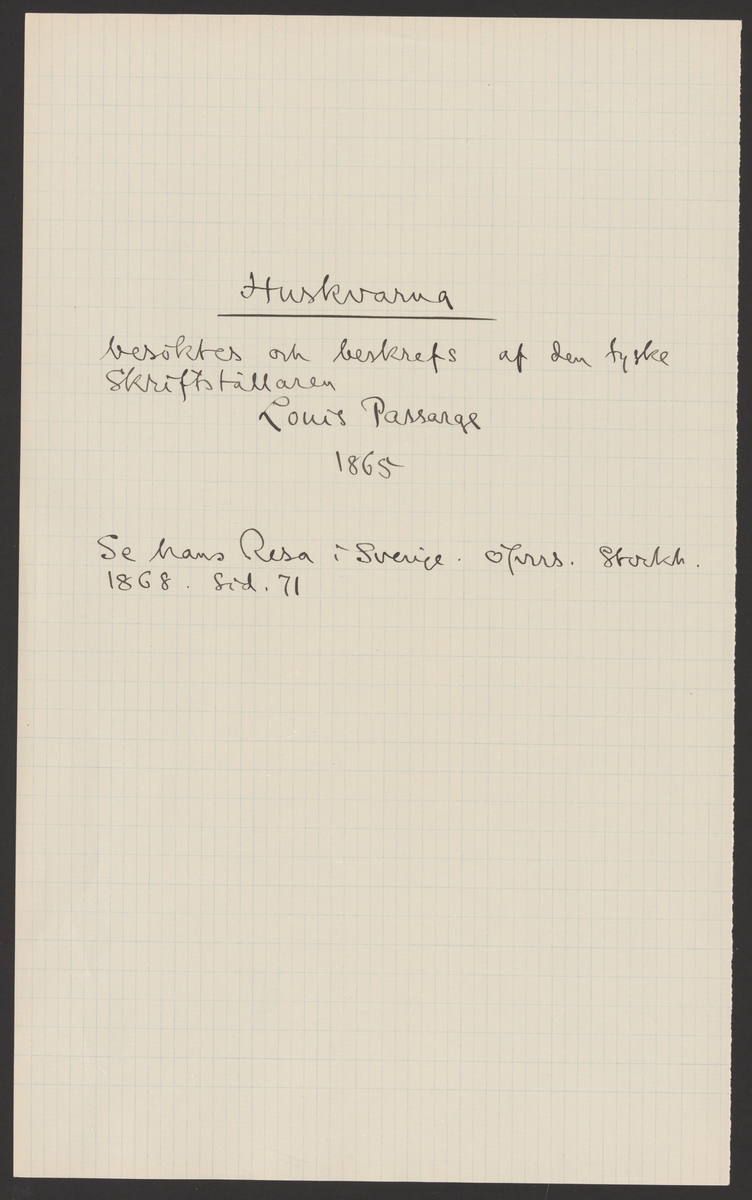 Huskvarna
besöktes och beskrefs af den tyske
Skriftställaren
Louis Passarge
1865
Se hans Resa i Sverige. öfvers. Stockh.
1868. Sid. 71